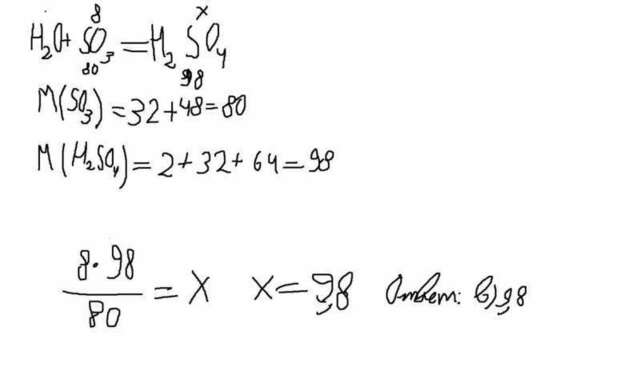 8 x
H₂O + SO₃ = H₂SO₄
80 98
M(SO₃) = 32 + 48 = 80
M(H₂SO₄) = 2 + 32 + 64 = 98
8 · 98
80
= X X = 9,8 Ответ: в) 9,8